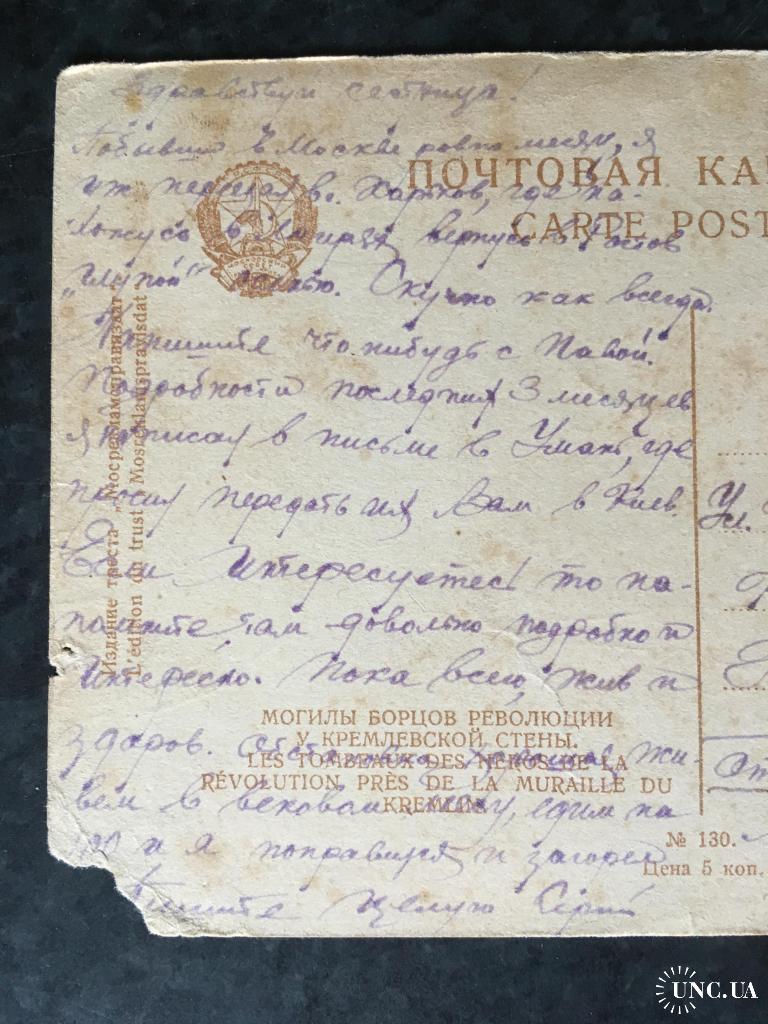 Здравствуй сестрица!
Побывши в Москве ровно месяц, я
уж переехал в г. Харьков, где на-
вернусь в Ростов
Скучно как всегда.
Напишите что нибудь с Павой.
Подробности последних 3 месяцев
я написал в письме в Умань, где
просил передать их Вам в Киев.
Если Интересуетесь то на-
пишите, там довольно подробно и
Интересно. Пока всего, жив и
здоров. жи-
вем в едим на
и я поправился и загорел
Пишите Целую
ПОЧТОВАЯ КА
CARTE POST
Издание треста „Мосрекламсправиздат“
L'édition du trust „Mosreklamspravisdat“
МОГИЛЫ БОРЦОВ РЕВОЛЮЦИИ
У КРЕМЛЕВСКОЙ СТЕНЫ.
LES TOMBEAUX DES HEROS DE LA
RÉVOLUTION PRÈS DE LA MURAILLE DU
KREMLIN
Ул.
От
№ 130.
Цена 5 коп.
UNC.UA